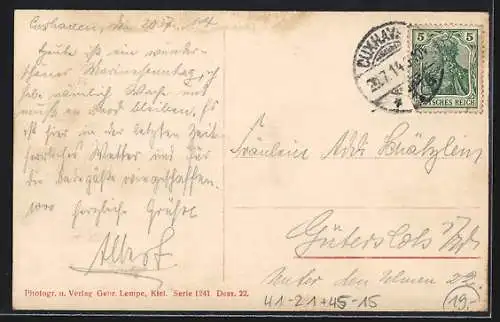 Cuxhaven, den 20.7.14
Heute ist ein wunder-
schöner Marinesonntag, ich
habe nämlich Wache und
muß an Bord bleiben. Es
ist hier in der letzten Zeit
herrliches Wetter und für
die Badegäste wie geschaffen.
herzliche Grüße
Albert
CUXHAVEN
20.7.14
5 5
DEUTSCHES REICH
Fräulein
Gütersloh
Unter den Ulmen 29
41-21+45-15
(19.-)
Photogr. u. Verlag Gebr. Lempe, Kiel. Serie 1241 Dess. 22.